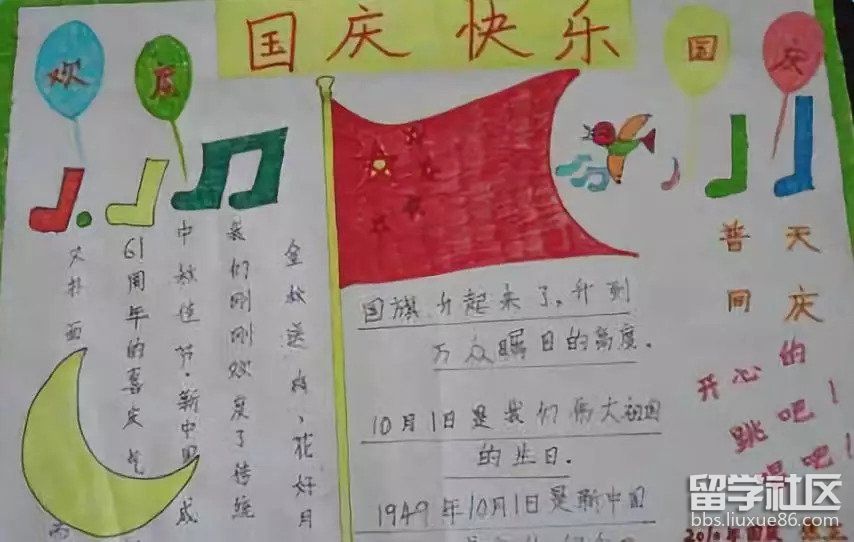 国庆快乐
欢
庆
国
庆
金秋送爽、花好月
我们刚刚欢度了传统
中秋佳节·新中国成
61周年的喜庆气
又扑面
国旗升起来了。升到
万众瞩目的高度。
10月1日是我们伟大祖国
的生日.
1949年10月1日是新中国
天庆
普同
开心的
跳吧！
唱吧！
留学社区
bbs.liuxue86.com